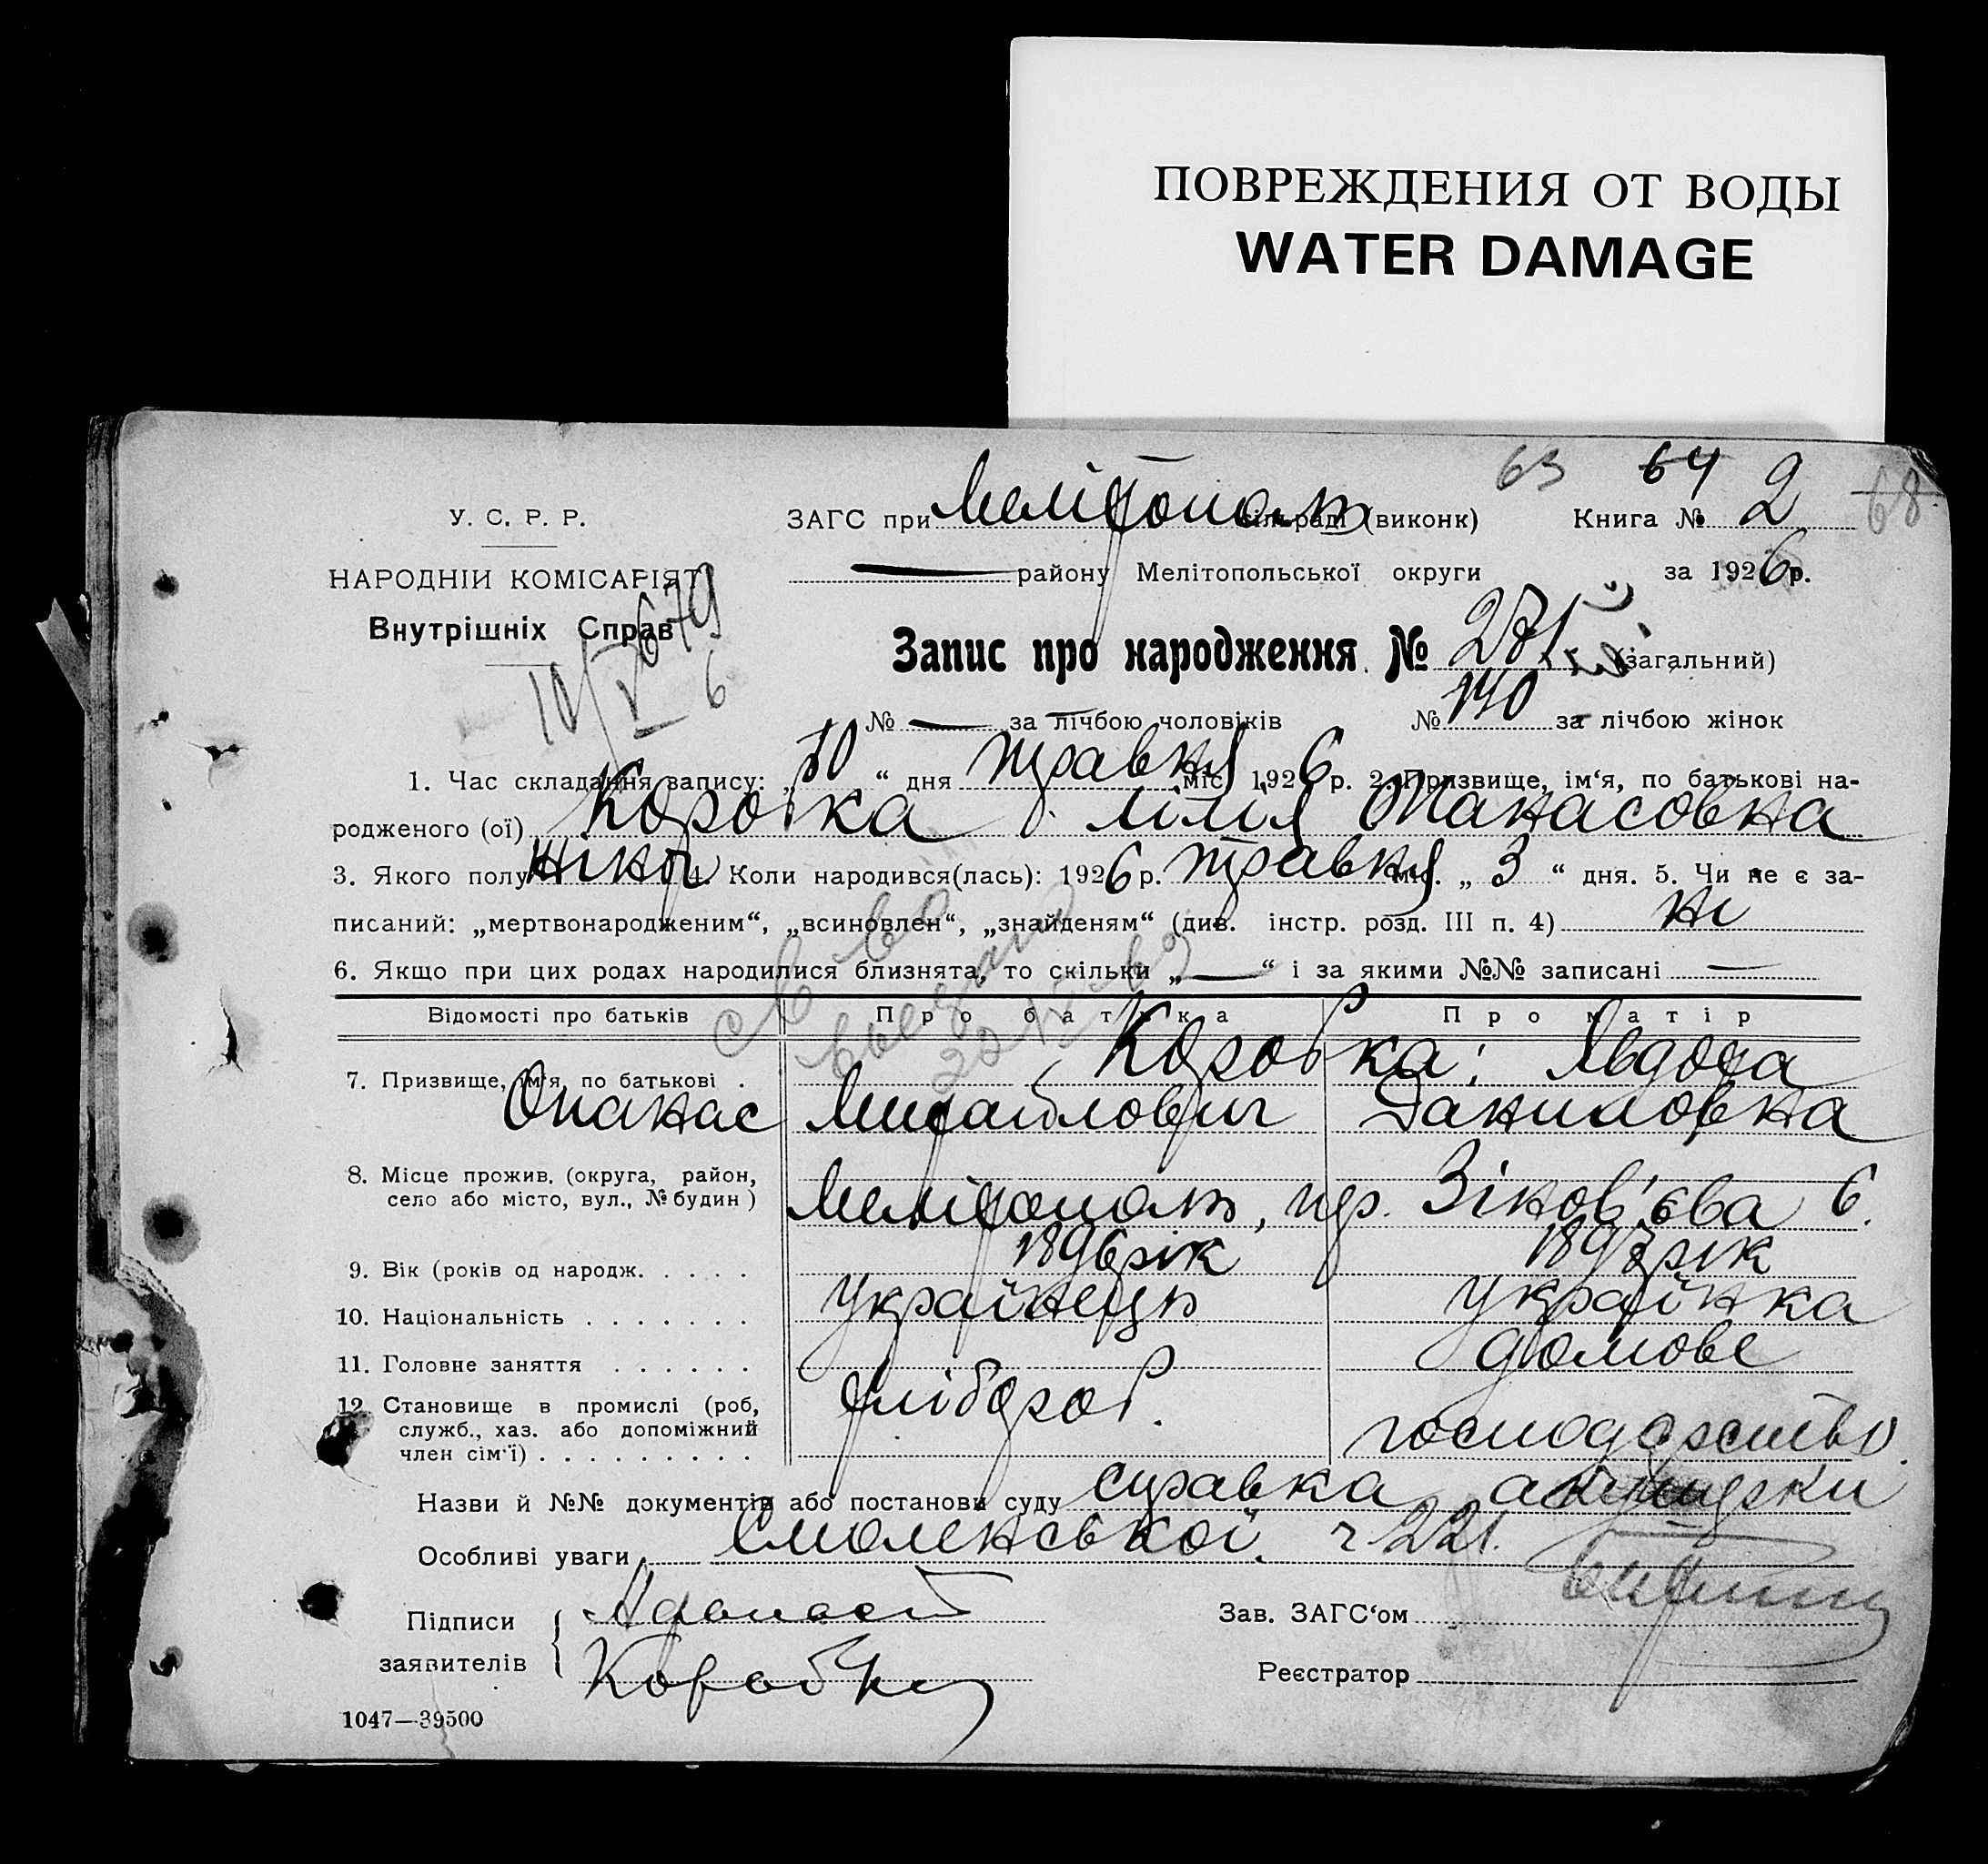 ПОВРЕЖДЕНИЯ ОТ ВОДЫ
WATER DAMAGE
63 64 68
У. С. Р. Р.
НАРОДНІЙ КОМІСАРІЯТ
Внутрішніх Справ
ЗАГС при Мелітополь сільраді (виконк) Книга № 2
— району Мелітопольської округи за 1926 р.
Запис про народження № 271 (загальний)
№ — за лічбою чоловіків № 140 за лічбою жінок
1. Час складання запису: „10“ дня травня міс. 1926 р. 2. Призвище, ім‘я, по батькові на-
родженого (ої) Коробка Лілія Танасовна
3. Якого полу жіноч 4. Коли народився(лась): 1926 р. травня міс. „3“ дня. 5. Чи не є за-
писаний: „мертвонародженим“, „всиновлен“, „знайденям“ (див. інстр. розд. III п. 4) ні
6. Якщо при цих родах народилися близнята, то скільки „—“ і за якими №№ записані —
Відомості про батьків Про батька Про матір
7. Призвище, ім‘я, по батькові . Коробка: Явдоха
Опанас Михайлович Даниловна
8. Місце прожив. (округа, район,
село або місто, вул., № будин) Мелітополь, пр. Зінов'єва 6.
9. Вік (років од народж. . . . . 1896 рік 1897 рік
10. Національність . . . . . . . Українець Українка
11. Головне заняття . . . . . . хлібороб. домове
12. Становище в промислі (роб,
служб., хаз. або допоміжний
член сім‘ї) . . . . . . . . . господарство
Назви й №№ документів або постанови суду справка акушерки
Особливі уваги Смоленської. ч. 221.
Підписи
заявителів
Афанаст
Коробка
Зав. ЗАГС‘ом
Реєстратор
1047—39500